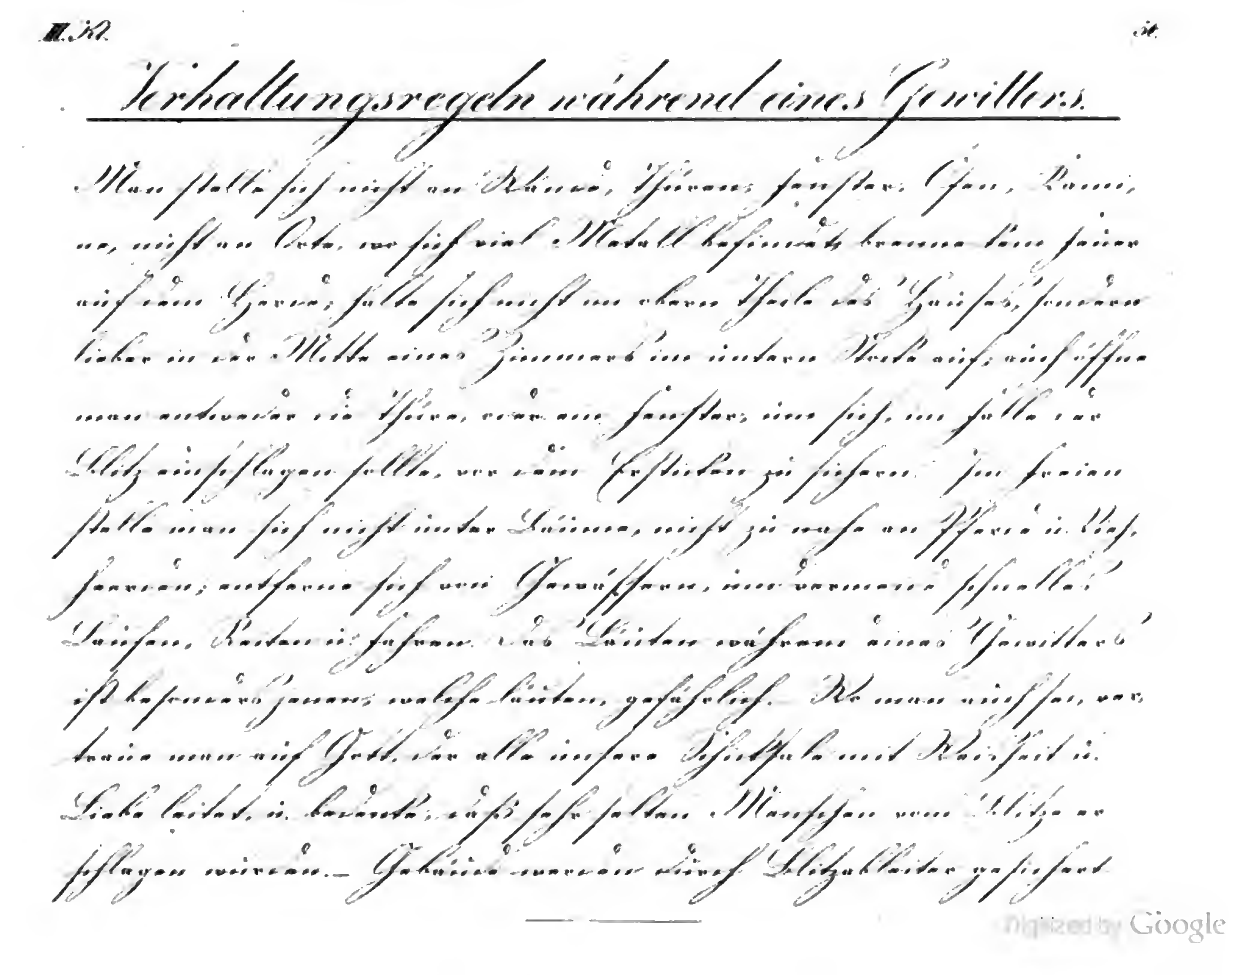 III. Kl. 31.
Verhaltungsregeln während eines Gewitters.
Man stelle sich nicht an Wände, Thüren, Fenster, Öfen, Kami-
ne, nicht an Orte, wo sich viel Metall befindet, brenne kein Feuer
auf dem Herde, halte sich nicht im obern Theile des Hauses, sondern
lieber in der Mitte eines Zimmers im untern Stocke auf; auch öffne
man entweder die Thüre, oder ein Fenster, um sich, im Falle der
Blitz einschlagen sollte, vor dem Ersticken zu sichern. Im Freien
stelle man sich nicht unter Bäume, nicht zu nahe an Pferde u. Vieh-
heerden; entferne sich von Gewässern, und vermeide schnelles
Laufen, Reiten u. Fahren. Das Läuten während eines Gewitters
ist besonders jenen, welche läuten, gefährlich. Wo man auch sey, ver-
traue man auf Gott, der alle unsere Schicksale mit Weisheit u.
Liebe leitet, u. bedenke, daß sehr selten Menschen vom Blitze er
schlagen wurden. – Gebäude werden durch Blitzableiter gesichert.
Digitized by Google